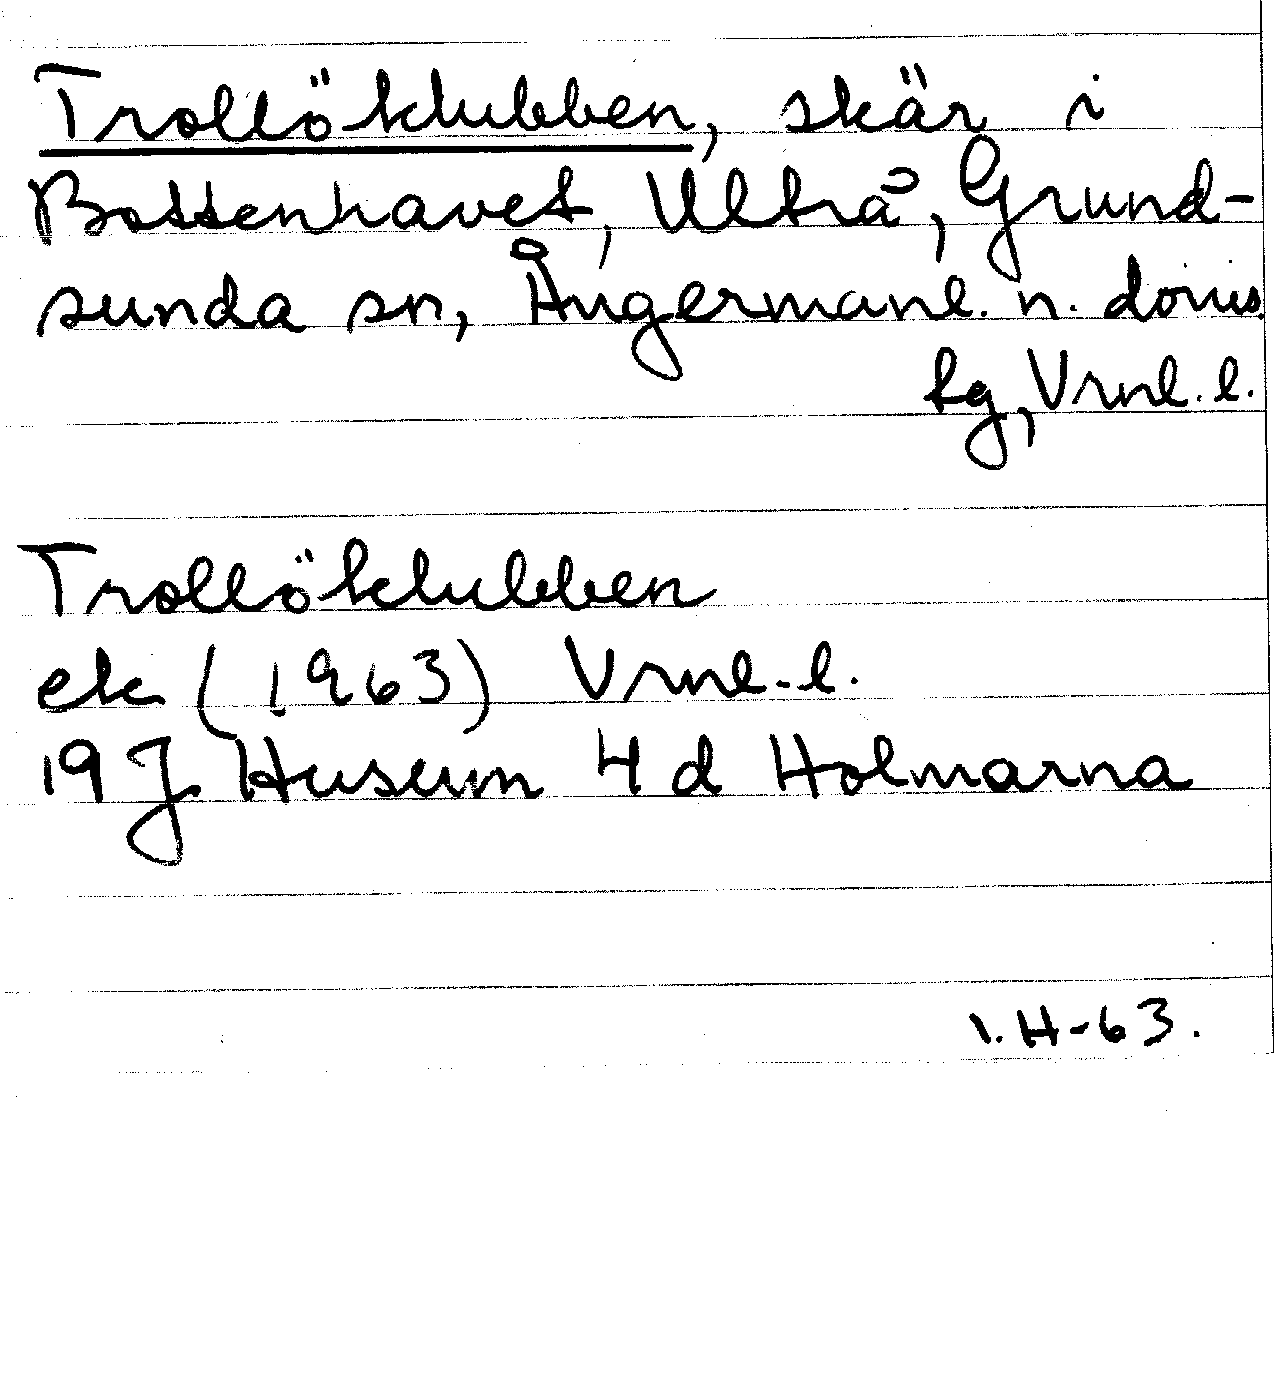 Trollöklubben, skär i
Bottenhavet, Ultrå, Grund-
sunda sn, Ångermanl. n. doms.
sg, Vrnl. l.
Trollöklubben
ek (1963) Vrnl. l.
19 J Husum 4 d Holmarna
I. H-63.